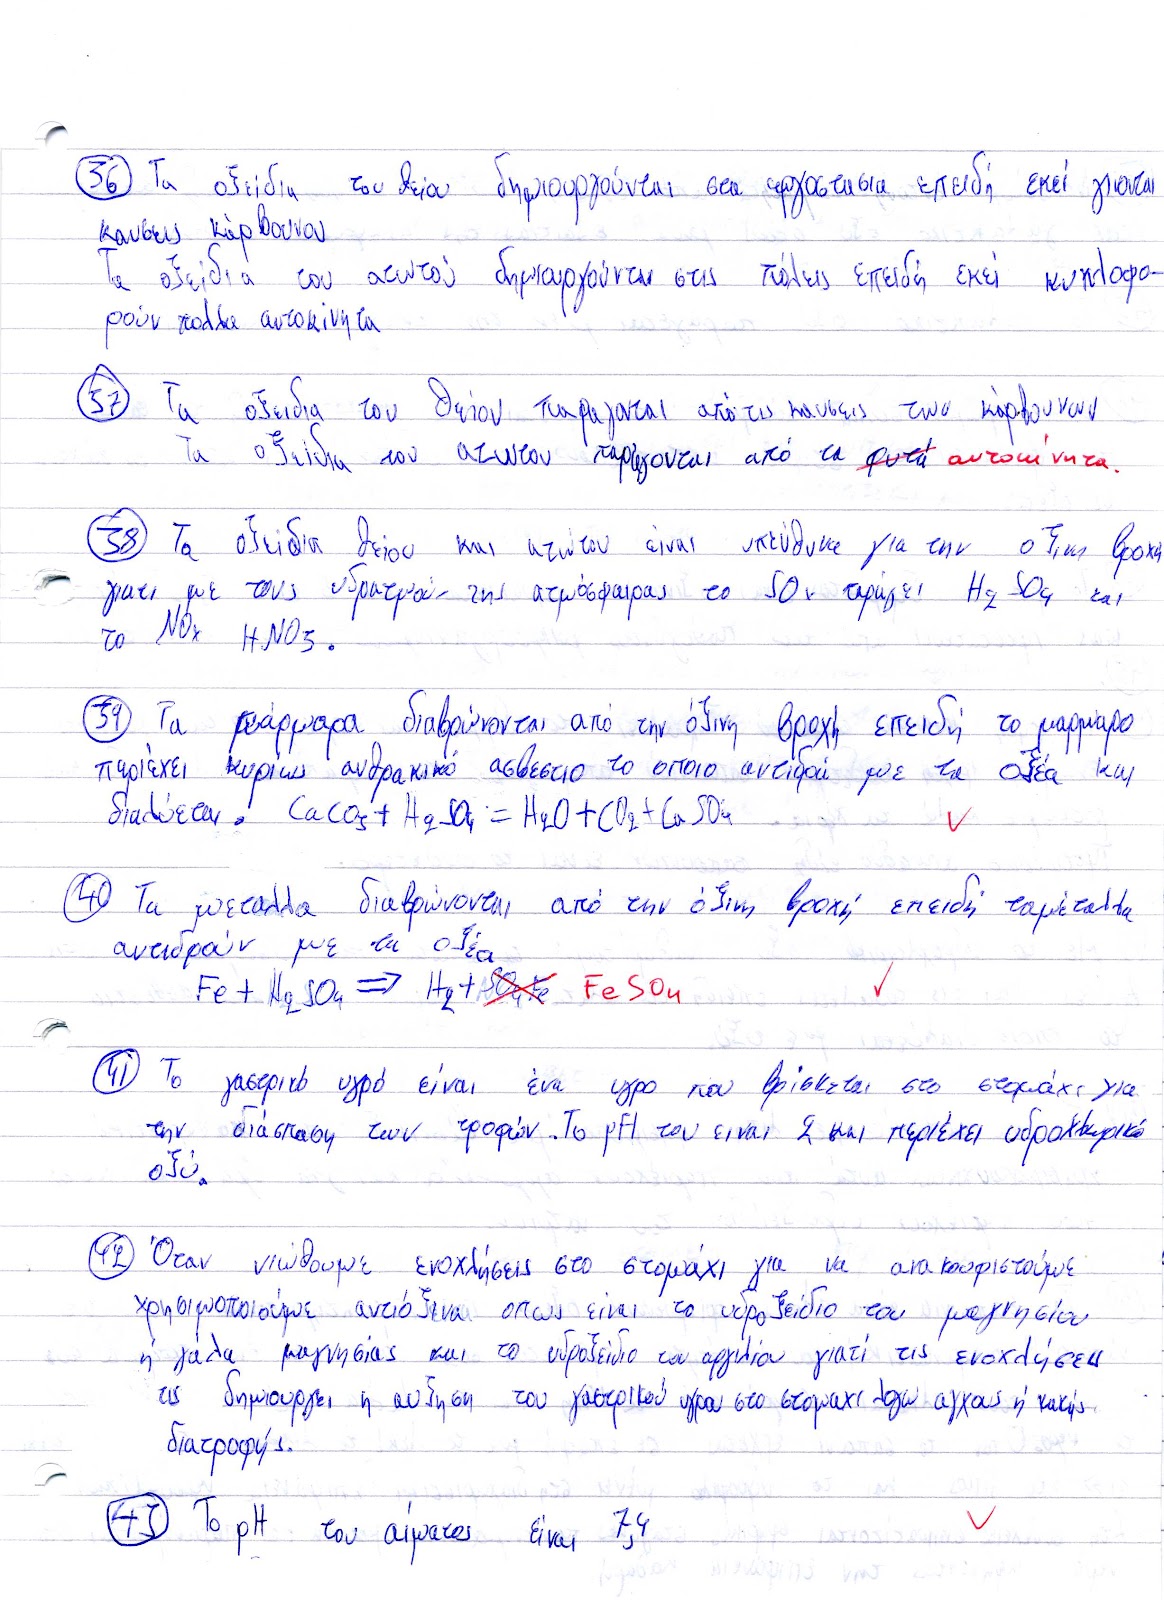 36 Τα οξείδια του θείου δημιουργούνται στα εργοστάσια επειδή εκεί γίνονται
καυσεις κάρβουνου
Τα οξείδια του αζωτού δημιουργούνται στις πόλεις επειδή εκεί κυκλοφο-
ρούν πολλα αυτοκίνητα
37 Τα οξειδια του θείου παραγονται από τις καυσεις των κάρβουνων
Τα οξείδια του αζωτου παράγονται από τα φυτά αυτοκίνητα.
38 Τα οξείδια θείου και αζώτου είναι υπεύθυνα για την οξινη βροχή
γιατι με τους υδρατμούς της ατμόσφαιρας το SOν παράγει H2SO4 και
το NOx HNO3.
39 Τα μάρμαρα διαβρώνονται από την όξινη βροχή επειδή το μαρμαρο
περιέχει κυρίως ανθρακικό ασβεστιο το οποιο αντιδρά με τα οξέα και
διαλύεται. CaCO3 + H2SO4 = H2O + CO2 + CaSO4
40 Τα μεταλλα διαβρώνονται από την όξινη βροχή επειδή τα μέταλλα
αντιδρούν με τα οξέα
Fe + H2SO4 ⇒ H2 + SO4Fe FeSO4
41 Το γαστρικό υγρό είναι ένα υγρο που βρίσκεται στο στομάχι για
την διάσπαση των τροφών. Το pH του ειναι 2 και περιέχει υδροχλωρικό
οξύ.
42 Όταν νιώθουμε ενοχλήσεις στο στομάχι για να ανακουφιστούμε
χρησιμοποιούμε αντιόξινα οπως είναι το υδροξείδιο του μαγνησίου
ή γάλα μαγνησίας και το υδροξείδιο του αργιλίου γιατί τις ενοχλήσεις
τις δημιουργει η αυξηση του γαστρικού υγρου στο στομαχι λογω αγχους ή κακής
διατροφής.
43 Το pH του αίματος είναι 7,4